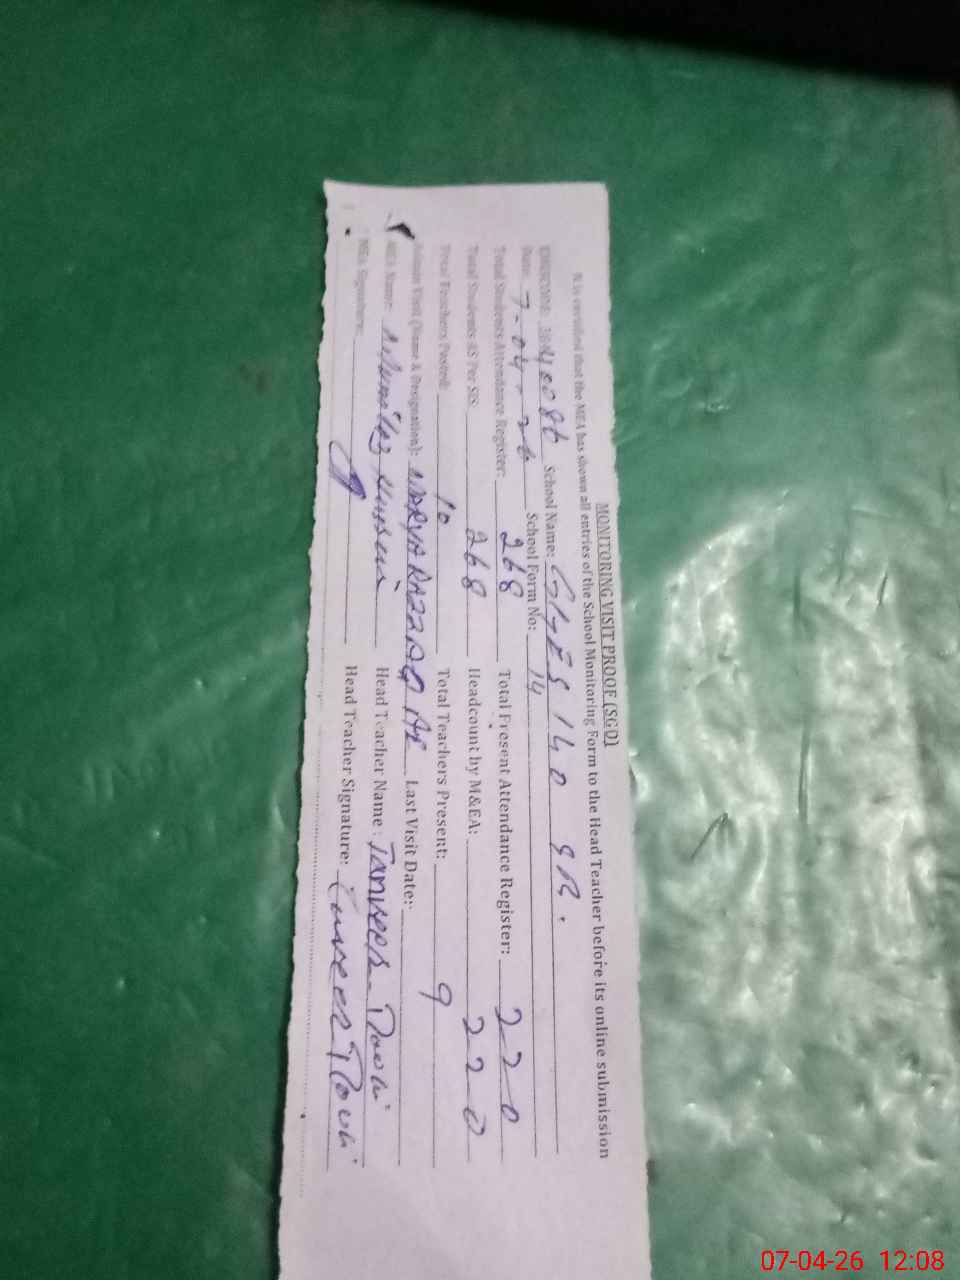 MONITORING VISIT PROOF (SGD)
It is certified that the MEA has shown all entries of the School Monitoring Form to the Head Teacher before its online submission
EMISCODE: School Name: GGES 140 SB.
Date: 7-04-26 School Form No: 14
Total Students Attendance Register: 268 Total Present Attendance Register: 220
Total Students AS Per SIS 268 Headcount by M&EA: 220
Total Teachers Posted: 10 Total Teachers Present: 9
Admin Visit (Name & Designation): RAZZAQ Last Visit Date:
MEA Name: Head Teacher Name: Tanveer
MEA Signature: Head Teacher Signature:
07-04-26 12:08